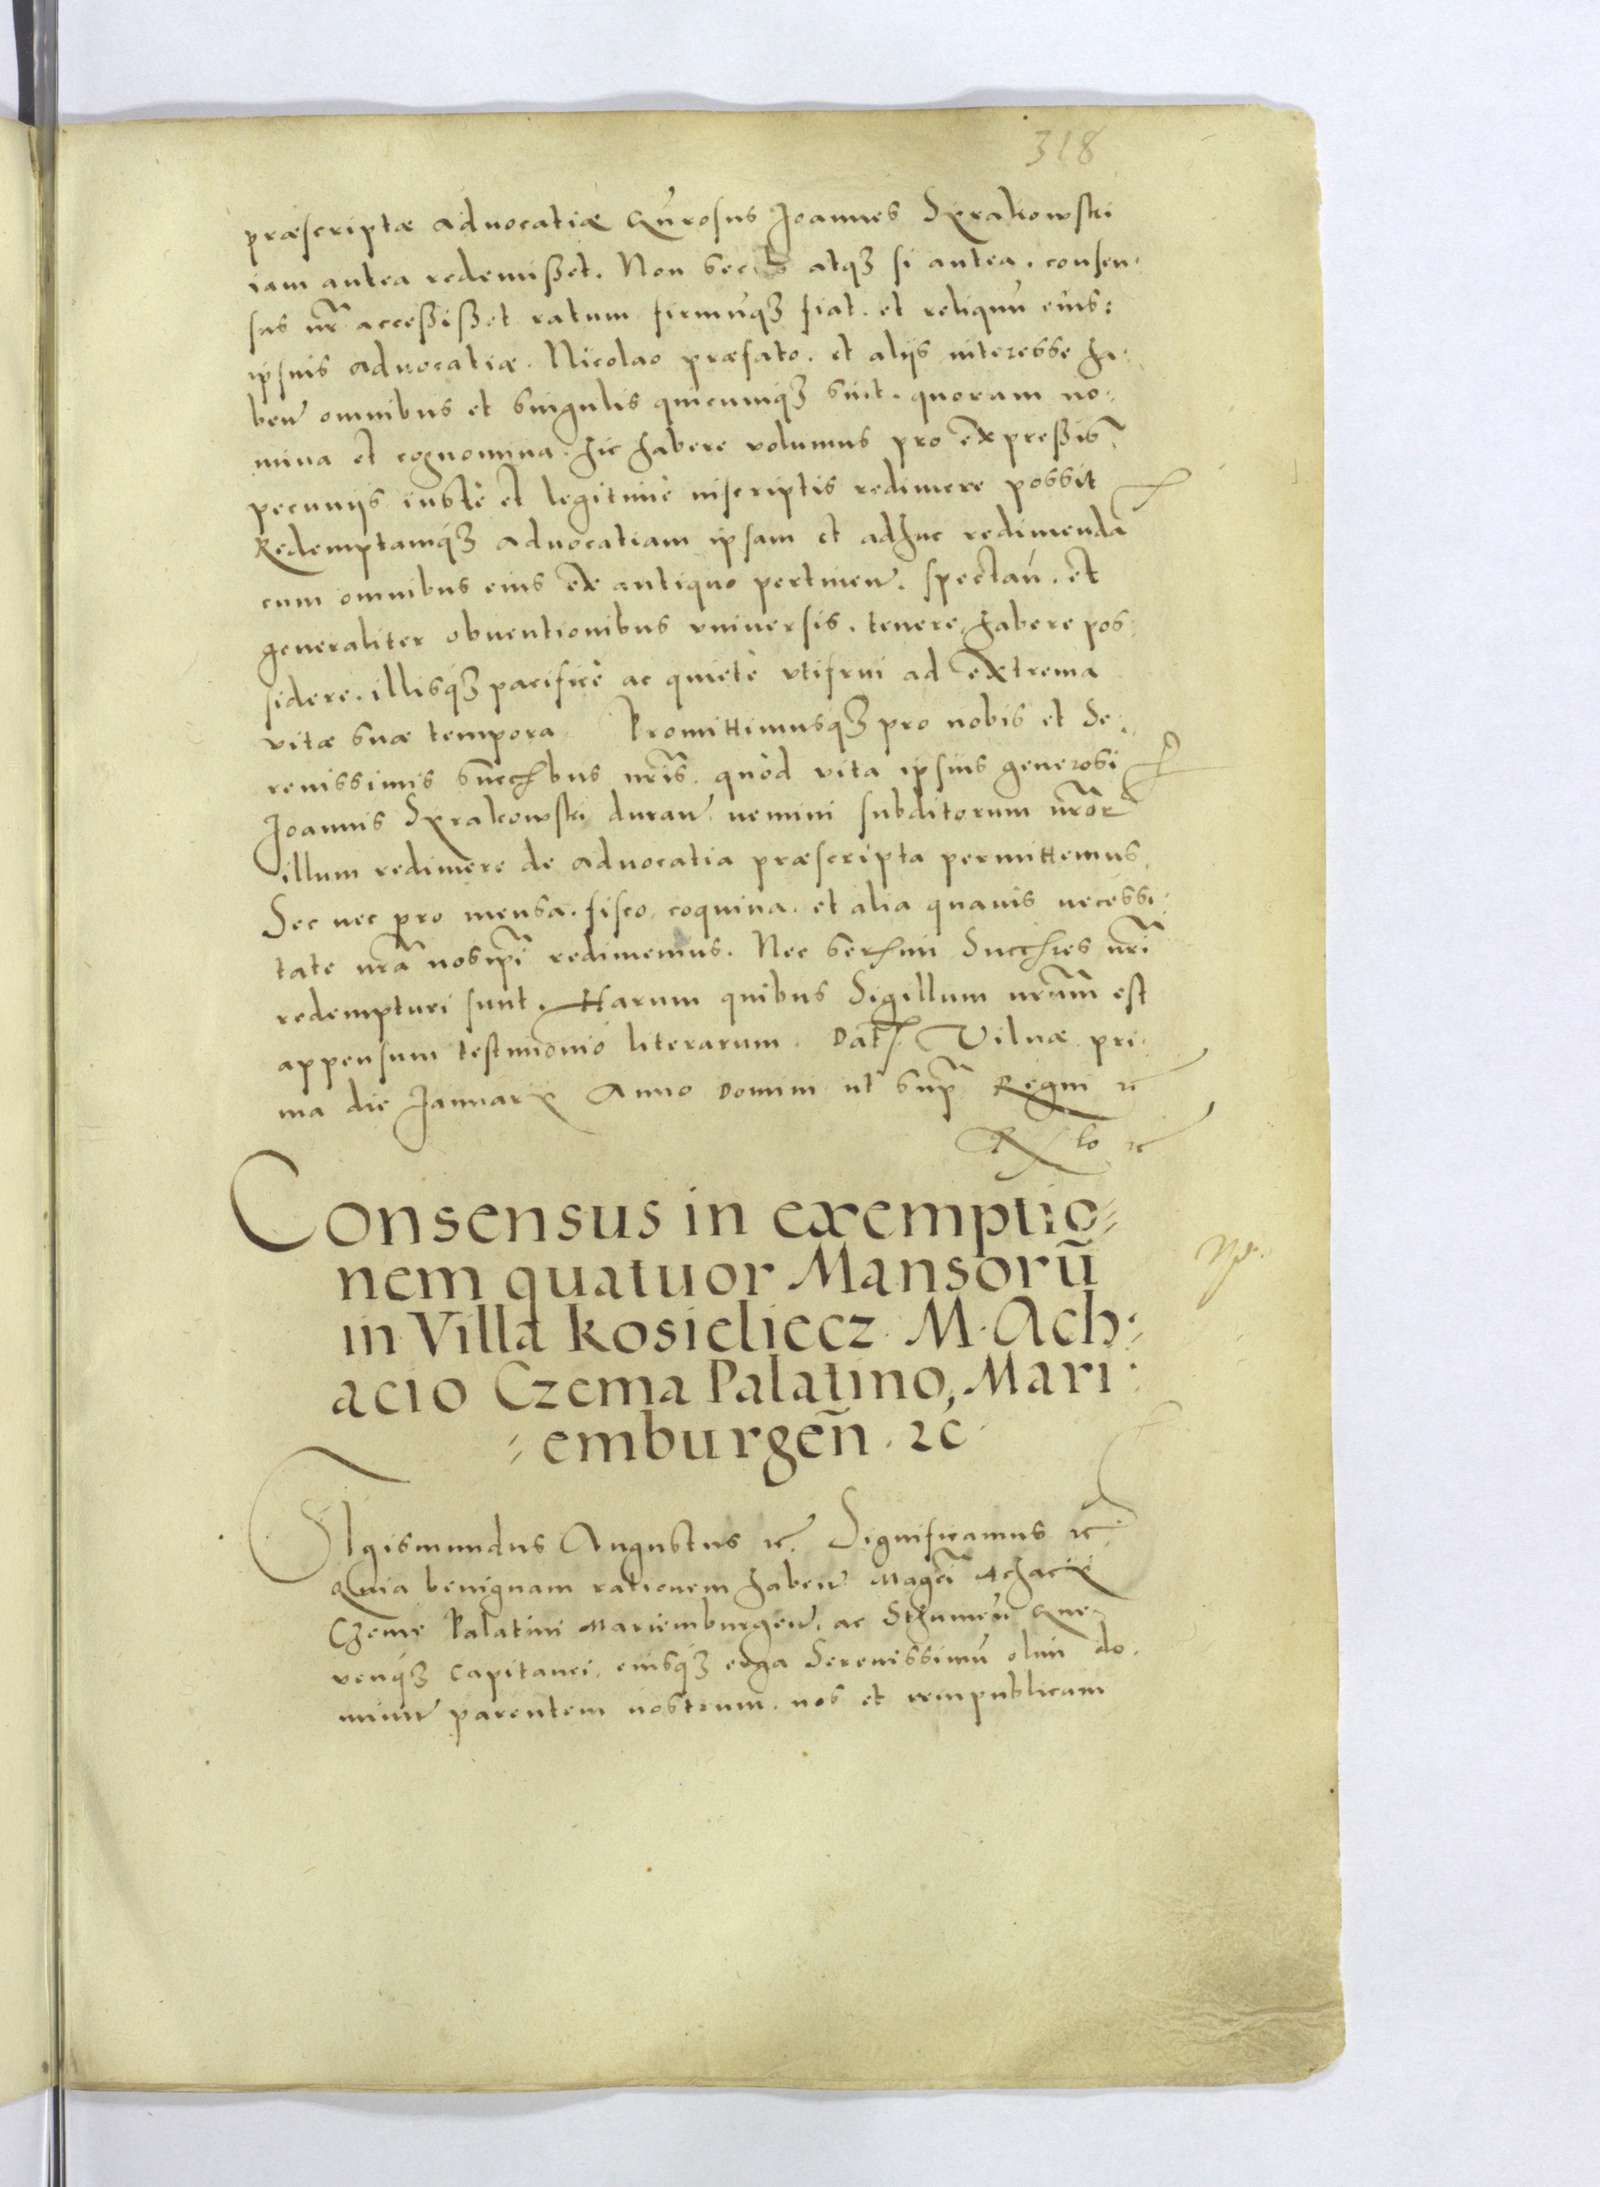 318
præscriptæ advocatiæ Gn̄rosus Joannes Sierakowski
iam antea redemisset. Non secus atq3 si antea. consen:
sus nr̄ accessisset ratum firmūq3 fiat. et reliquū eius:
ipsius advocatiæ. Nicolao præfato. et aliis interesse ha:
ben̄ omnibus et singulis quicumq3 sint. quorum no:
mina et cognomina hic habere volumus pro expressis
pecuniis iustè et legitimè inscriptis redimere possit
Redemptamq3 advocatiam ipsam et adhuc redimendā
cum omnibus eius ex antiquo pertinen̄. spectan̄. et
generaliter obventionibus vniversis. tenere habere pos:
sidere. illisq3 pacificè ac quietè vtifrui ad extrema
vitæ suæ tempora Promittimusq3 pro nobis et Se:
renissimis succ̄bus nr̄is. quòd vita ipsius generosi
Joannis Sierakowski duran̄ nemini subditorum nr̄or
illum redimere de advocatia præscripta permittemus.
Sec nec pro mensa. fisco. coquina. et alia quavis necessi:
tate nr̄a nosip̄i redimemus. Nec ser̄mi Succ̄res nr̄i
redempturi sunt. Harum quibus Sigillum nr̄um est
appensum testimonio literarum. Dat. Vilnæ pri:
ma die Januarii Anno Domini ut sup̄ Regni ꝛc
Consensus in exemptio:
nem quatuor Mansorū
in Villa Kosieliecz M. Ach:
acio Czema Palatino, Mari:
:emburgen̄. ꝛc
SIgismundus Augustus ꝛc. Significamus ꝛc
Quia benignam rationem haben̄ Magc̄i Achacii
Czeme Palatini Mariemburgen̄. ac Sthumen̄ Gne:
venq3 Capitanei, eiusq3 erga Serenissimū olim do:
minū parentem nostrum. nos et rempublicam